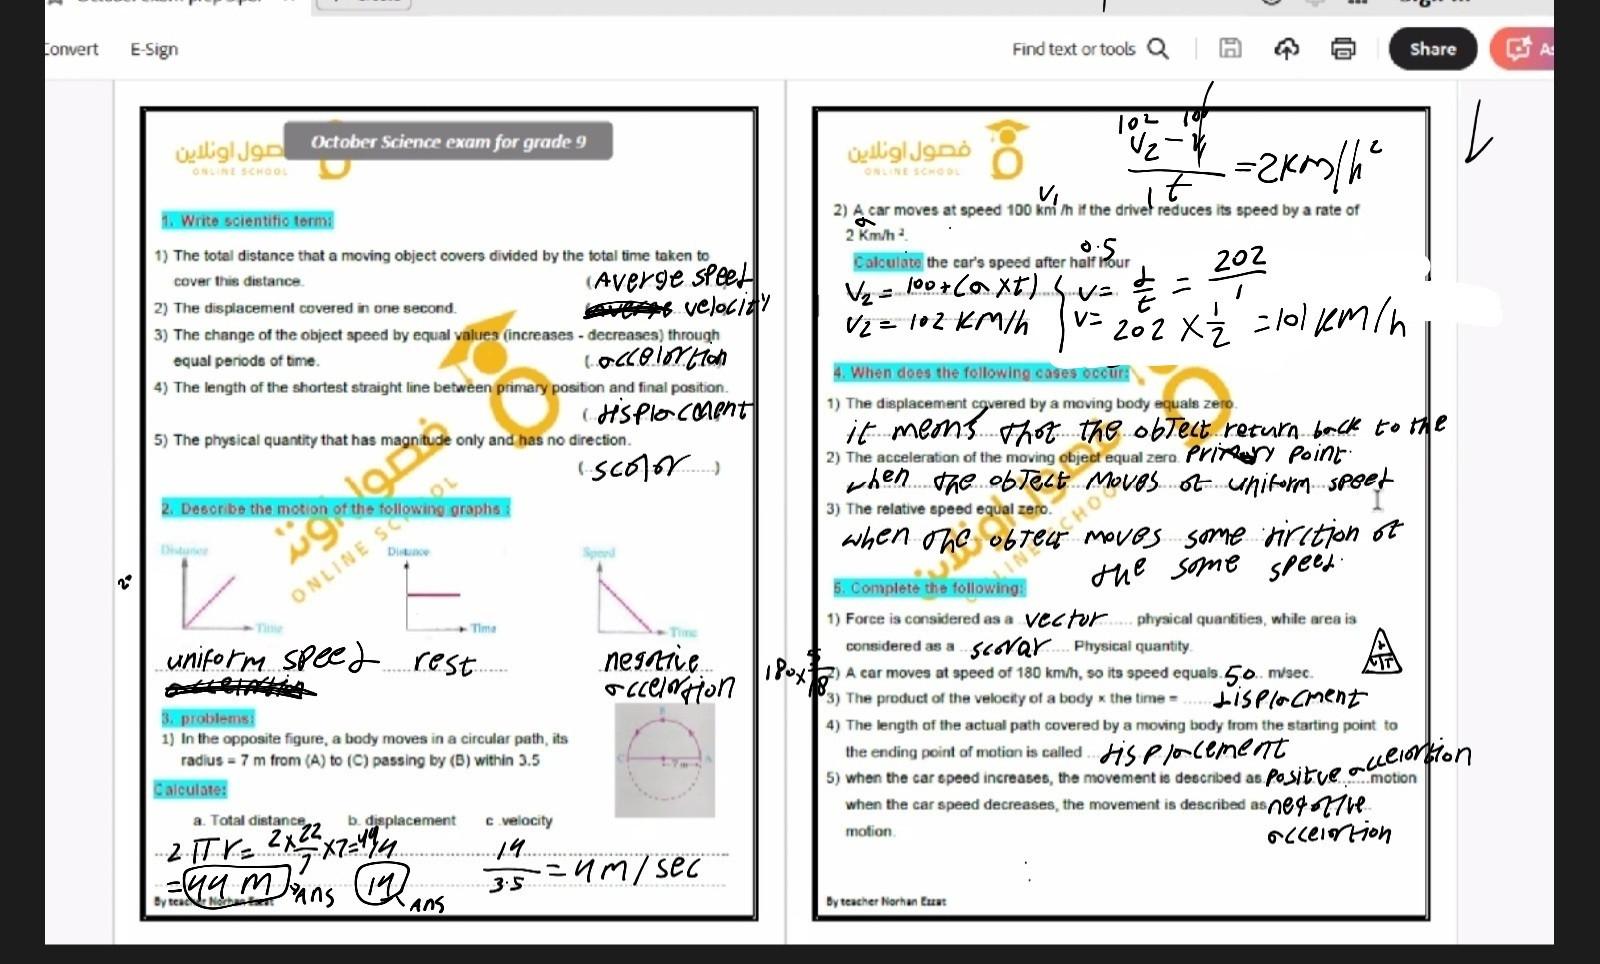 Convert E-Sign Find text or tools Share
October Science exam for grade 9
فصول اونلاين
ONLINE SCHOOL
1. Write scientific term:
1) The total distance that a moving object covers divided by the total time taken to
cover this distance. (Averge speed
2) The displacement covered in one second. velocity
3) The change of the object speed by equal values (increases - decreases) through
equal periods of time. (..accelortion
4) The length of the shortest straight line between primary position and final position.
(..displacment
5) The physical quantity that has magnitude only and has no direction.
(..scalar......)
2. Describe the motion of the following graphs :
Distance Distance Speed
Time Time Time
uniform speed rest negative
accelartion
3. problems:
1) In the opposite figure, a body moves in a circular path, its
radius = 7 m from (A) to (C) passing by (B) within 3.5
B
C 7 m A
Calculate:
a. Total distance b. displacement c .velocity
2 π r = 2 x 22/7 x 7 = 44
14/3.5 = 4 m / sec
= 44 m → Ans 14 Ans
By teacher Norhan Ezzat
فصول اونلاين
ONLINE SCHOOL
102 100
V2 - V / 1 t = 2 Km/h²
V1
2) A car moves at speed 100 km /h if the driver reduces its speed by a rate of
a
2 Km/h ².
0.5
Calculate the car's speed after half hour
V2 = 100 + (a x t) V = d/t = 202/1
V2 = 102 KM/h V = 202 x 1/2 = 101 KM/h
4. When does the following cases occur:
1) The displacement covered by a moving body equals zero.
it means that the object return back to the
2) The acceleration of the moving object equal zero. Primary point.
when the object moves at uniform speed
3) The relative speed equal zero.
when the object moves same dirction at
the same speed.
5. Complete the following:
1) Force is considered as a ..vector..... physical quantities, while area is
considered as a ..scalar..... Physical quantity.
180 x 5/18
2) A car moves at speed of 180 km/h, so its speed equals..50.. m/sec.
3) The product of the velocity of a body × the time = ......displacment
4) The length of the actual path covered by a moving body from the starting point to
the ending point of motion is called ...displacement
5) when the car speed increases, the movement is described as positve accelortion motion
when the car speed decreases, the movement is described as negative
accelortion
motion.
By teacher Norhan Ezzat